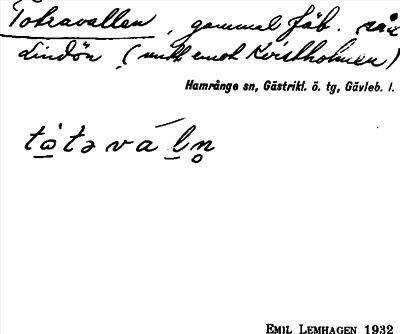 Totravallen, gammal fäb. på
Lindön (mitt emot Kvistholmen)
Hamrånge sn, Gästrikl. ö. tg, Gävleb. l.
EMIL LEMHAGEN 1932